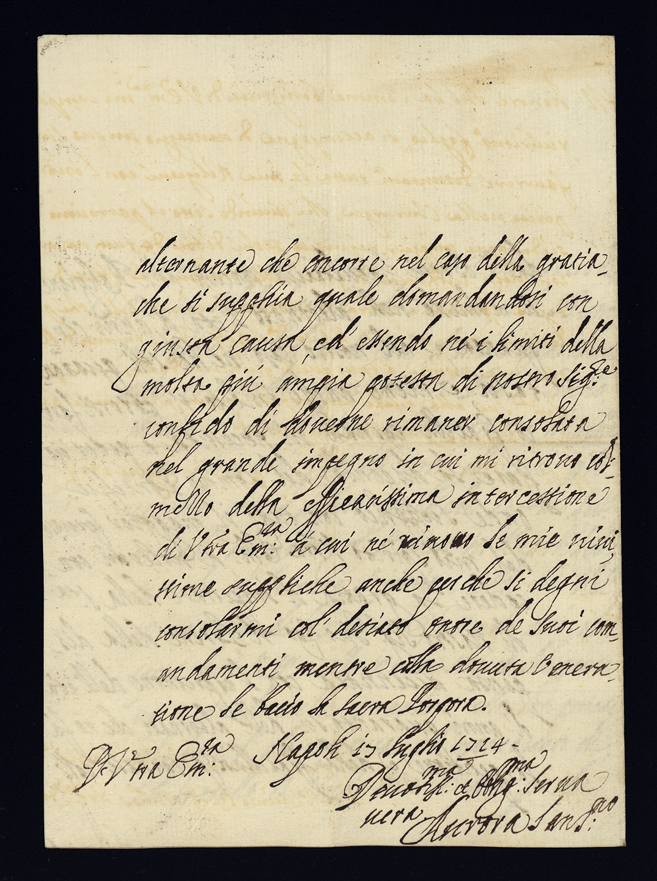 alternante che concorre nel caso della gratia,
che si supplica quale domandandosi con
giusta causa, ed essendo né i limiti della
molta più ampia potestà di nostro Sig.re
confido di doverne rimaner consolata
nel grande impegno in cui mi ritrovo col
mezzo della efficacissima intercessione
di V'ra Em:za à cui ne rinovo le mie vivis
sime suppliche anche perche si degni
consolarmi col' desiato onore de suoi com,
andamenti mentre colla dovuta Venera,
tione le bacio la sacra Porpora.
Napoli 17 luglio 1714.
D. V'ra Em:za
Devotis:ma et Oblig:ma Serva
vera
Aurora Sans:no